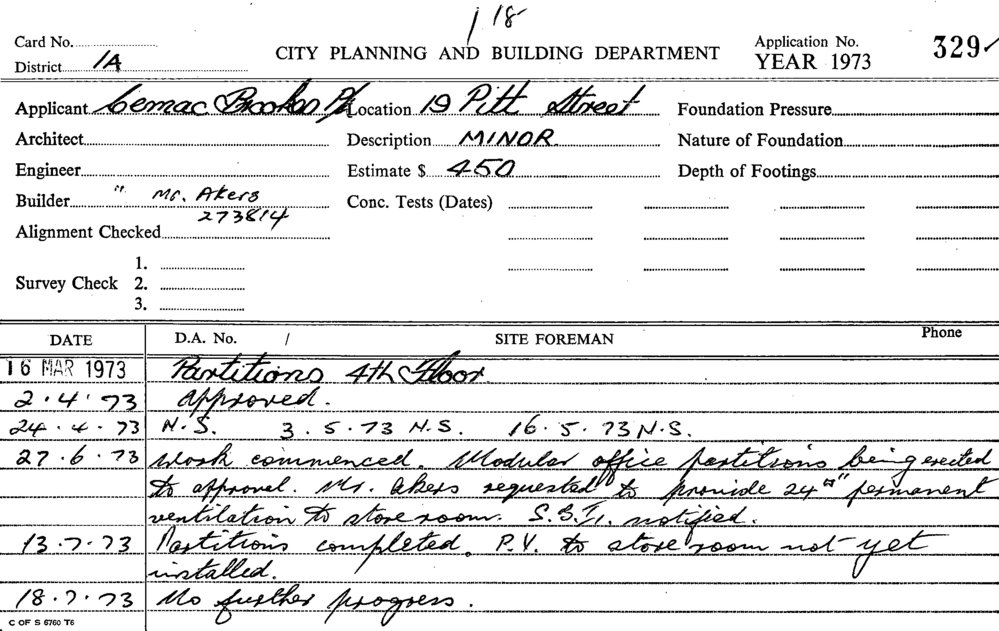 1 18
Card No.
CITY PLANNING AND BUILDING DEPARTMENT
Application No.
YEAR 1973
329
District 1A
Applicant Cemac Brooks P/L
Location 19 Pitt Street
Foundation Pressure
Architect
Description MINOR
Nature of Foundation
Engineer
Estimate $ 450
Depth of Footings
Builder " Mr. Akers
273814
Conc. Tests (Dates)
Alignment Checked
Survey Check 1.
2.
3.
DATE D.A. No. / SITE FOREMAN Phone
16 MAR 1973 Partitions 4th Floor
2.4.73 Approved.
24.4.73 N.S. 3.5.73 N.S. 16.5.73 N.S.
27.6.73 Work commenced. Modular office partitions being erected
to approval. Mr. Akers requested to provide 24 □" permanent
ventilation to store room. notified.
13.7.73 Partitions completed. P.V. to store room not yet
installed.
18.7.73 No further progress.
C OF S 6760 T6